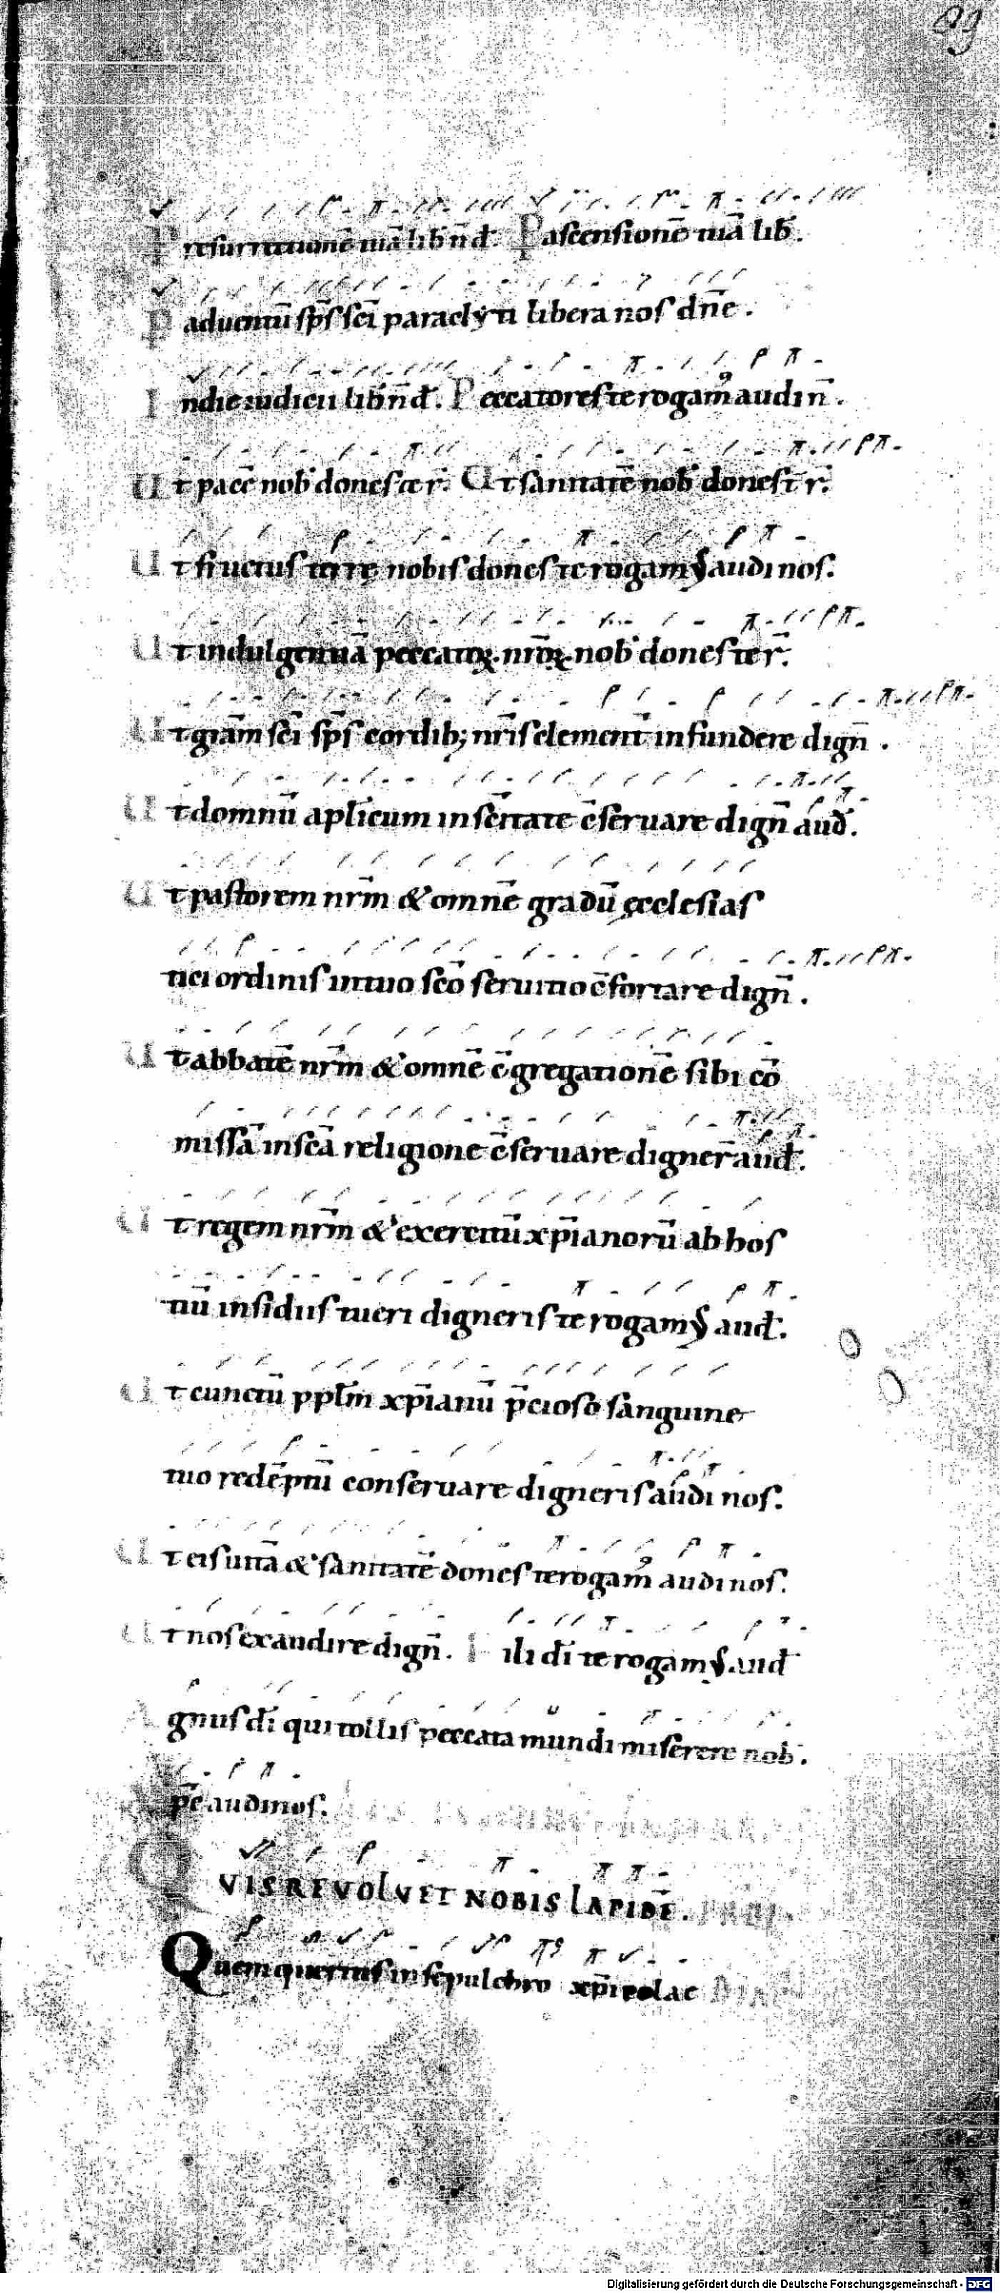 89
P resurrectionē tuā lib̄ n̄ d̄. P ascensionē tuā lib̄.
P aduentū sp̄s sc̄i paraclyti libera nos dn̄e.
I ndie iudicii lib̄ n̄ d̄. P eccatores te rogam᾽ audi n̄.
U t pacē nob̄ dones te r̄. U t sanitatē nob̄ dones t̄ r̄.
U t fructus terrę nobis dones te rogamꝰ audi nos.
U t indulgentiā peccatoꝝ nr̄oꝝ nob̄ dones te r̄.
U t gr̄am sc̄i sp̄s cordib; nr̄is clement̄ infundere dign̄.
U t domnū apl̄icum in sc̄itate c̄seruare dign̄ aud̄.
U t pastorem nr̄m & omnē gradū ęcclesias
tici ordinis in tuo sc̄o seruitio c̄fortare dign̄.
U t abbatē nr̄m & omnē c̄gregationē sibi cō
missā in sc̄a religione c̄seruare digner̄ aud̄.
U t regem nr̄m & exercitū xp̄ianorū ab hos
tiū insidiis tueri digneris te rogamꝰ aud̄.
U t cunctū ppl̄m xp̄ianū p̄cioso sanguine
tuo redēptū conseruare digneris audi nos.
U t eis uitā & sanitatē dones te rogam᾽ audi nos.
U t nos exaudire dign̄. F ili dī te rogamꝰ aud̄
A gnus dī qui tollis peccata mundi miserere nob̄.
xp̄e audi nos.
Q VIS REVOLVET NOBIS LAPIDĒ.
Quem queritis in sepulchro xp̄icolae
Digitalisierung gefördert durch die Deutsche Forschungsgemeinschaft - DFG